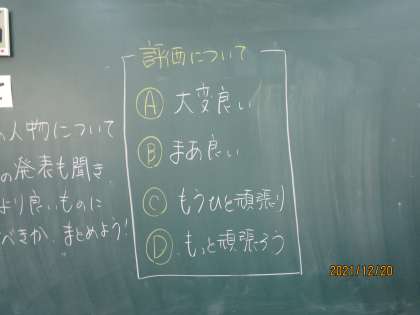 の人物について
の発表も聞き
より良いものに
べきか、まとめよう!
評価について
Ⓐ 大変良い
Ⓑ まあ良い
Ⓒ もうひと頑張り
Ⓓ もっと頑張ろう
2021/12/20